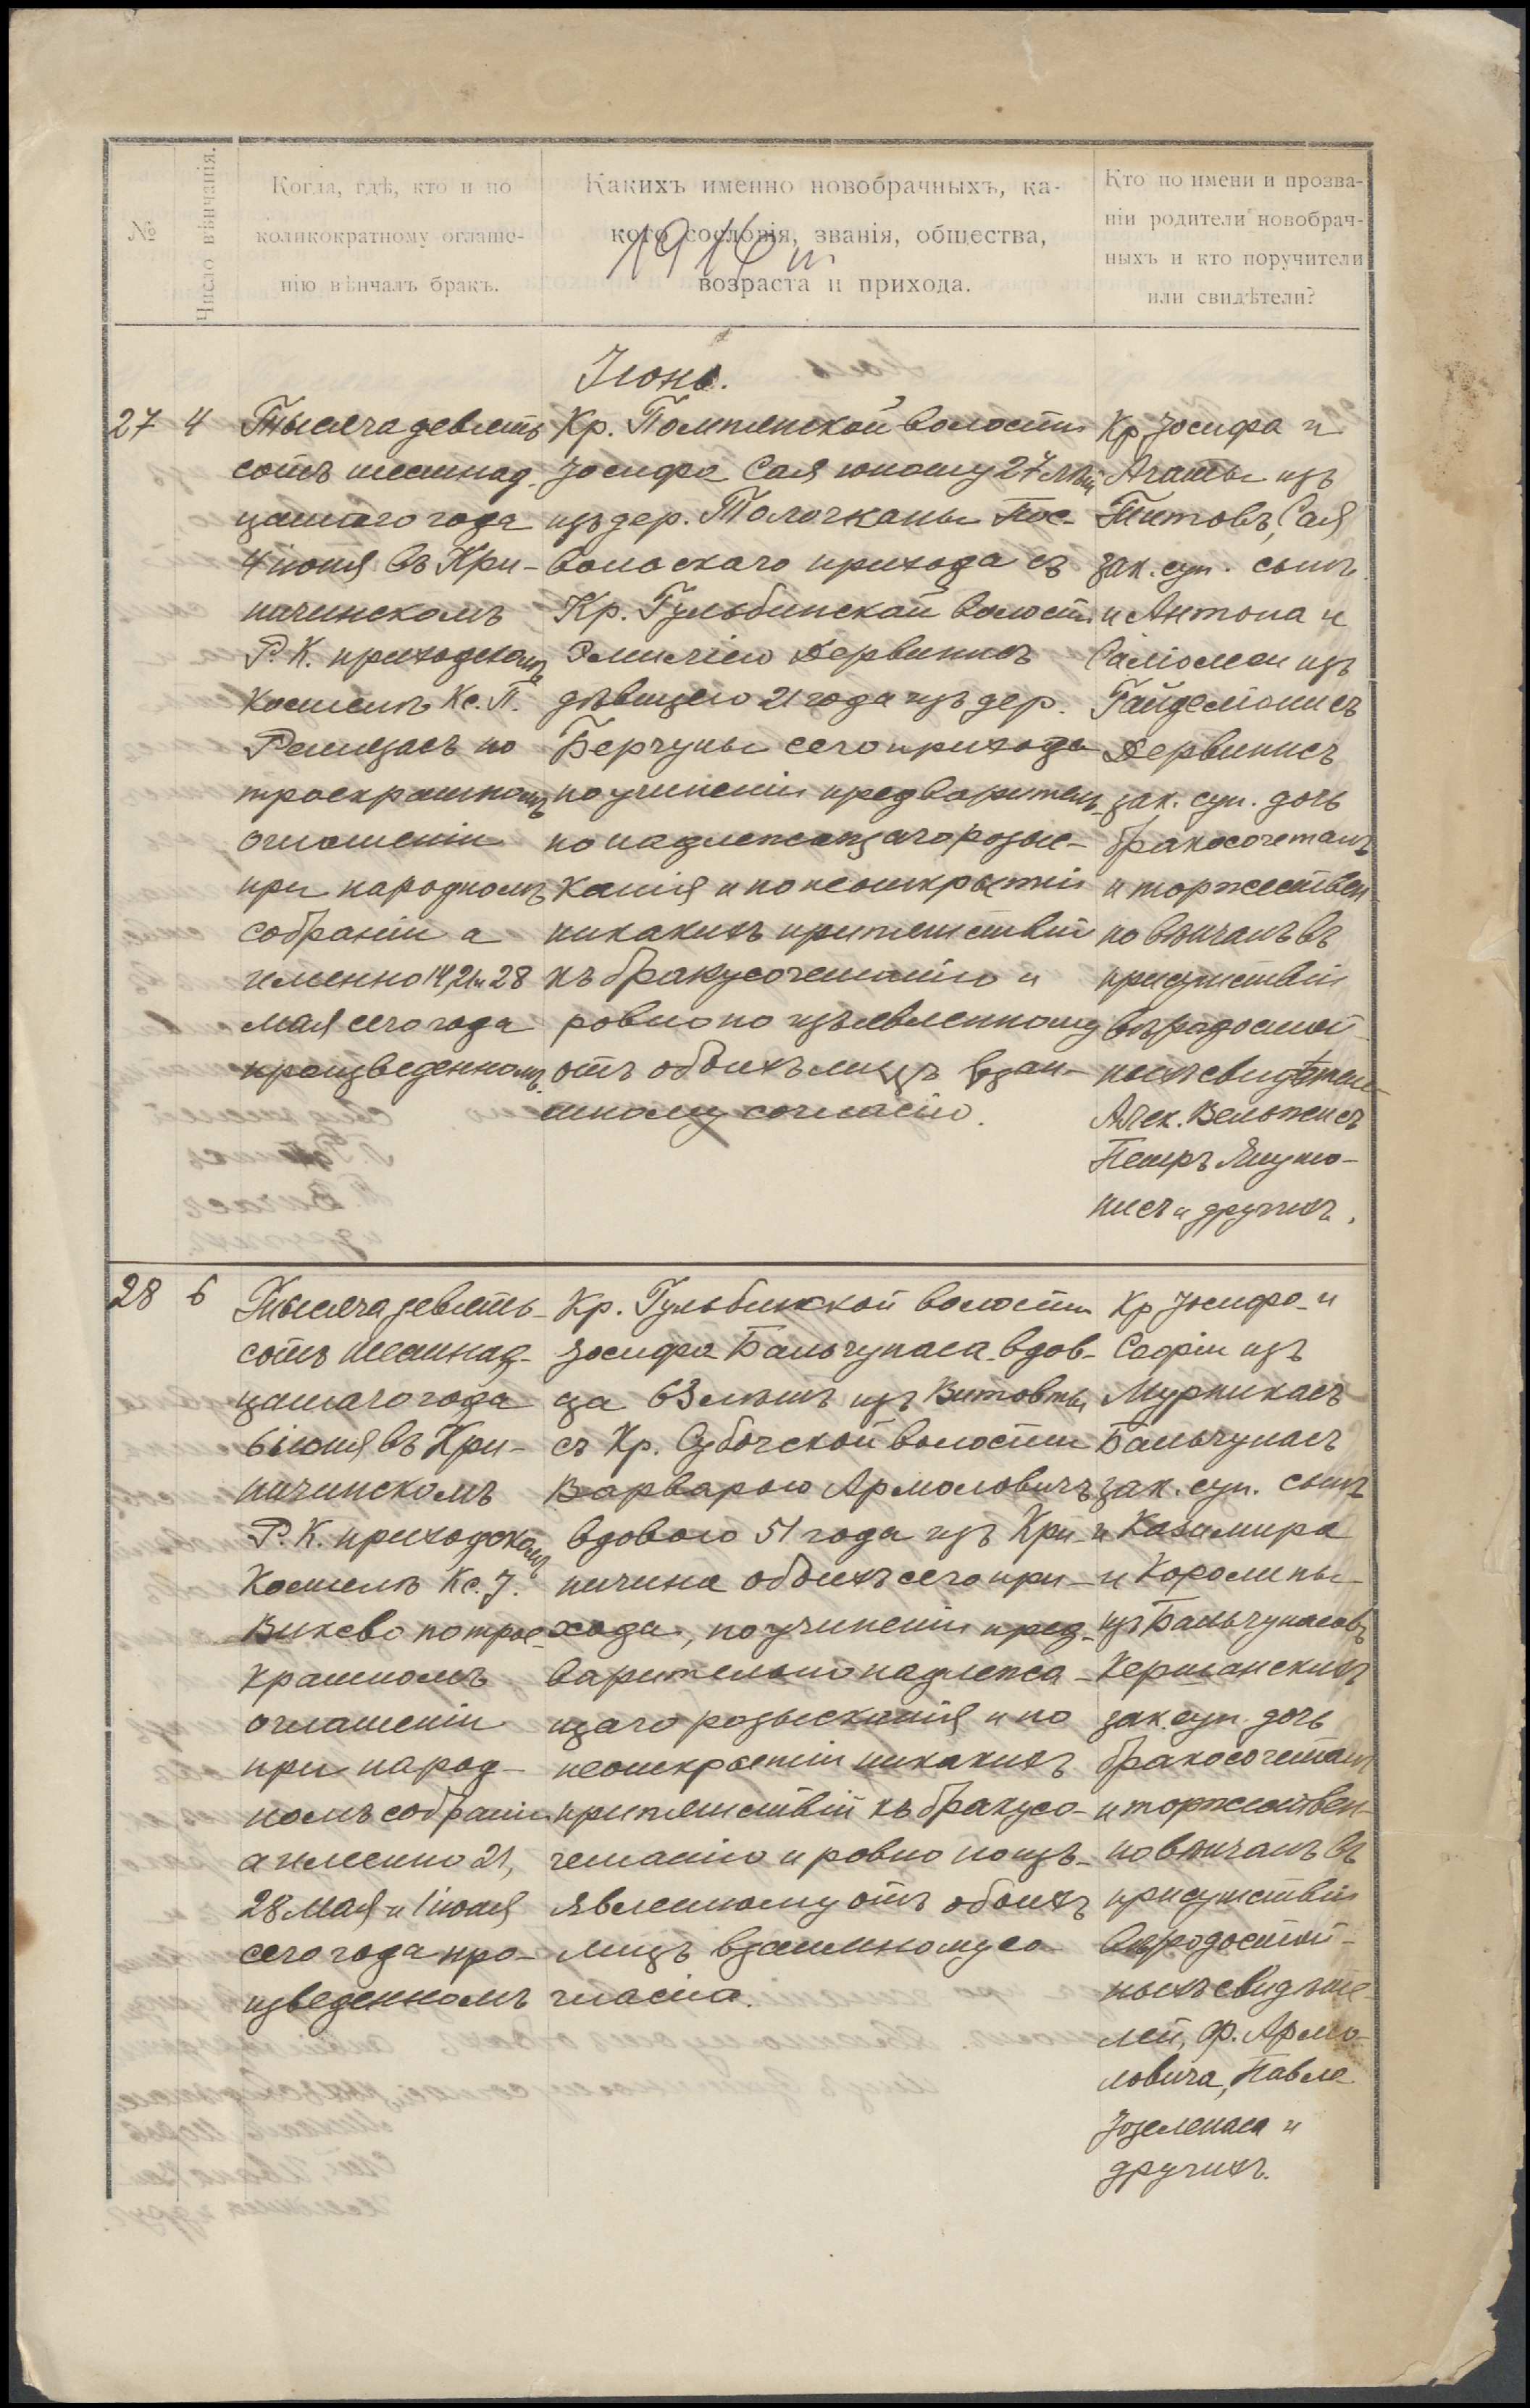 №
Число вѣнчанія.
Когда, гдѣ, кто и по
коликократному оглаше-
нію вѣнчалъ бракъ.
Какихъ именно новобрачныхъ, ка-
кого сословія, званія, общества,
возраста и прихода.
Кто по имени и прозва-
ніи родители новобрач-
ныхъ и кто поручители
или свидѣтели?
Іюнь.
27
4
Тысяча девять
сотъ шестнад
цатаго года
4 іюня въ Кри-
ничинскомъ
Р. К. приходскомъ
Костелѣ Кс. П.
по
троекратномъ
оглашеніи
при народномъ
собраніи а
именно 14, 21 и 28
мая сего года
произведенномъ
Кр. волости
Іосифа Сая юношу 27 лѣтъ
изъ дер. Пос-
вольскаго прихода съ
Кр. Гульбинской волости
Эмиліею Дервинисъ
дѣвицею 21 года изъ дер.
Берчуны сего прихода
по учиненіи предваритель-
но надлежащаго розыс-
канія и по неоткрытіи
никакихъ препятствій
къ бракусочетанію и
ровно по изъявленному
отъ обоихъ лицъ взаи-
мному согласію.
Кр. Іосифа и
Агаты изъ
Титовъ, Сая
зак. суп. сынъ
и Антона и
Саліомеи изъ
Дервинисъ
зак. суп. дочь
бракосочеталъ
и торжествен-
но вѣнчалъ въ
присутствіи
вѣрадостой-
ныхъ свидѣтел
Алек.
Петръ
нисъ и другихъ.
28
6
Тысяча девять-
сотъ шестнад-
цатаго года
6 іюня въ Кри-
ничинскомъ
Р. К. приходскомъ
Костелѣ Кс. І.
по трое-
кратномъ
оглашеніи
при народ-
номъ собраніи
а именно 21,
28 мая и 1 іюня
сего года про-
изведенномъ
Кр. Гульбинской волости
Іосифа Бальчунаса вдов-
ца 63 лѣтъ изъ Витовты
съ Кр. Субочской волости
Варварою Армоловичъ
вдовою 51 года изъ Кри-
ничина обоихъ сего при-
хода, по учиненіи пред-
варительно надлежа-
щаго розысканія и по
неоткрытіи никакихъ
препятствій къ бракусо-
четанію и ровно по изъ-
явленному отъ обоихъ
лицъ взаимному со-
гласію.
Кр. Іосифа и
Софіи изъ
Бальчунасъ
зак. суп. сынъ
и Казимира
и Каролины
изъ Бальчунасовъ
зак. суп. дочь
бракосочеталъ
и торжествен-
но вѣнчалъ въ
присутствіи
вѣродостой-
ныхъ свидѣте-
лей, Ф. Армо-
ловича, Павла
и
другихъ.